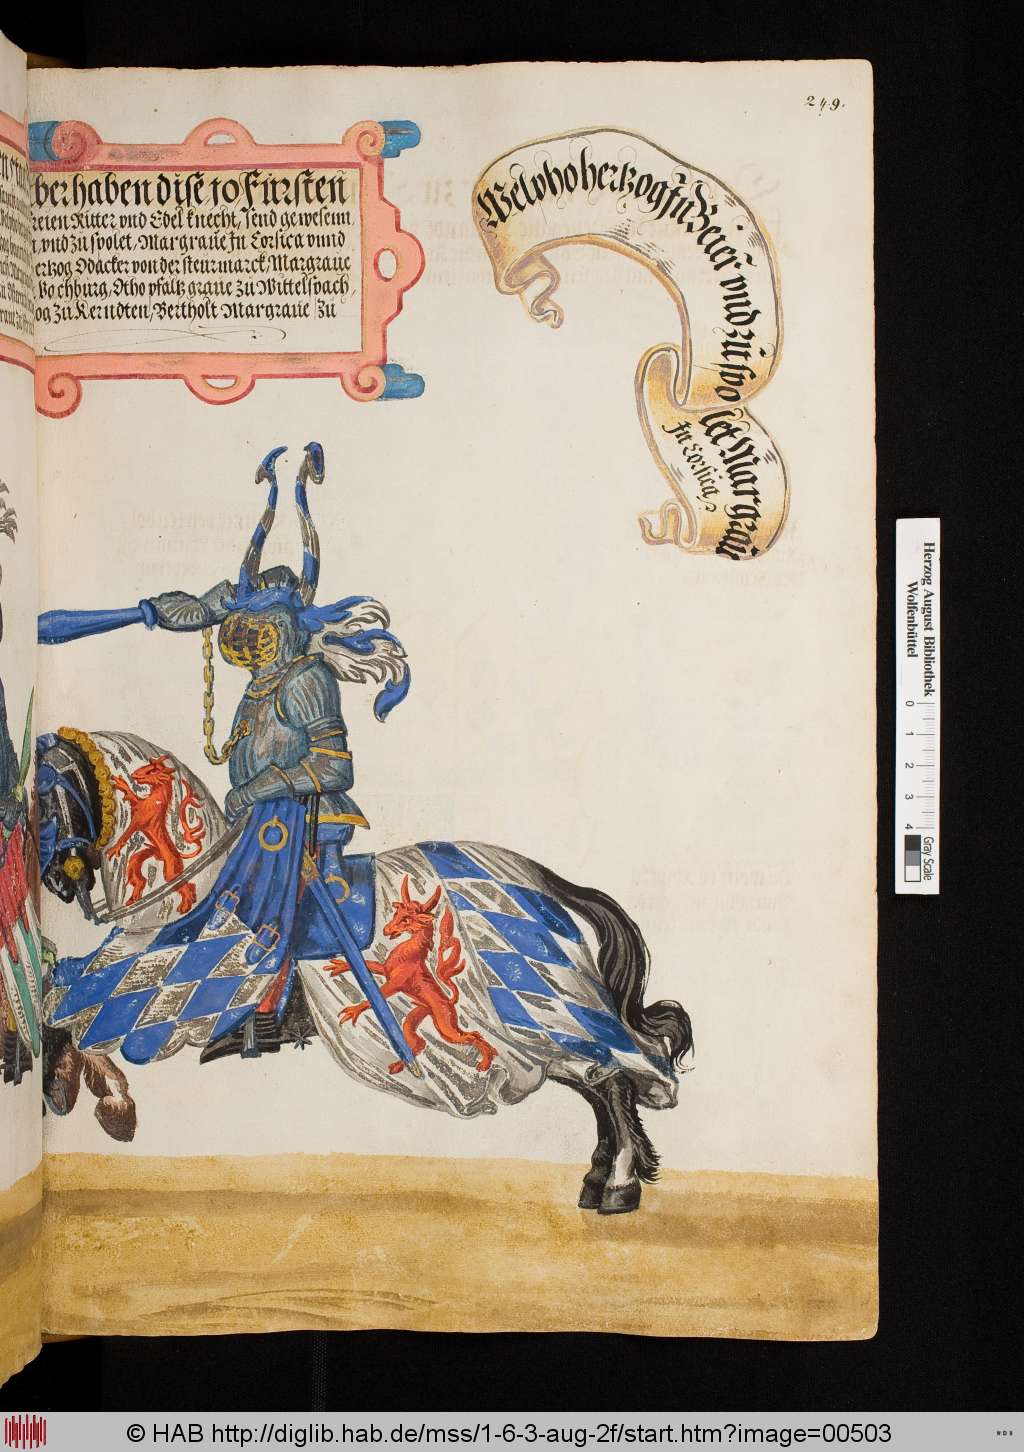 249.
ber haben dise 10 Fürsten
reien Ritter vnd Edel knecht, send gewesenn,
vnd zu spolet, Margraue Jn Corsica vnnd
ertzog Odacker von der steurmarck, Margraue
Vochburg, Otho pfaltzgraue zu Wittelspach,
og Zu Kerndten, Bertholt Margraue Zu
Welpho hertzog Jn Beiern vnd zu spo
let Margraū
Jn Corsica
Herzog August Bibliothek
Wolfenbüttel
0 1 2 3 4
Gray Scale
© HAB http://diglib.hab.de/mss/1-6-3-aug-2f/start.htm?image=00503